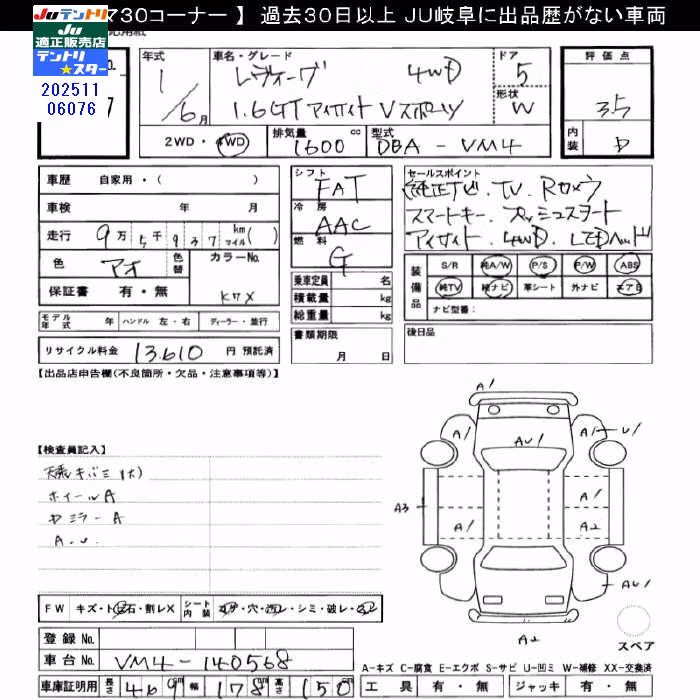 7730コーナー 】 過去30日以上 JU岐阜に出品歴がない車両
JUテントリ
JU
適正販売店
テントリ
★スター
202511
06076
年式
1/6月
車名・グレード
レヴォーグ 4WD
1.6GTアイサイトVスポーツ
ドア
5
形状
W
評価点
3.5
内装
D
2WD・4WD
排気量 1600 cc
型式 DBA-VM4
車歴 自家用・( )
車検 年 月
走行 9万5千937 km マイル( )
色 アオ
色替
カラーNo. K7X
保証書 有・無
シフト FAT
冷房 AAC
燃料 G
乗車定員 名
積載量 kg
総重量 kg
セールスポイント
純正ナビ. TV. Rカメラ
スマートキー. プッシュスタート
アイサイト. 4WD. LEDヘッド
装備品
S/R 純A/W P/S P/W ABS
純TV 純ナビ 革シート 外ナビ エアB
ナビ型番:
モデル年式 年 ハンドル 左・右 ディーラー・並行
リサイクル料金 13,610 円 預託済
書類期限
月 日
後日品
【出品店申告欄(不良箇所・欠品・注意事項等)】
【検査員記入】
天張キバミ(大)
ホイールA
ドミラーA
A.U.
A1
A1
U1
AU1
A1
A3
A1
A1
A2
AU1
A2
スペア
FW キズ・飛石・割レX
シート内装 コゲ・穴・汚レ・シミ・破レ・スレ
登録No.
車台No. VM4-140568
車庫証明用 長さ 469cm 幅 178cm 高さ 150cm
A-キズ C-腐食 E-エクボ S-サビ U-凹ミ W-補修 XX-交換済
工具 有・無 ジャッキ 有・無